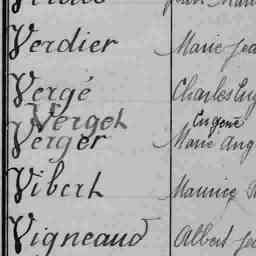 Verdier Marie
Vergé Charles
Vergot Eugène
Verger Marie
Vibert Maurice
Vigneaud Albert